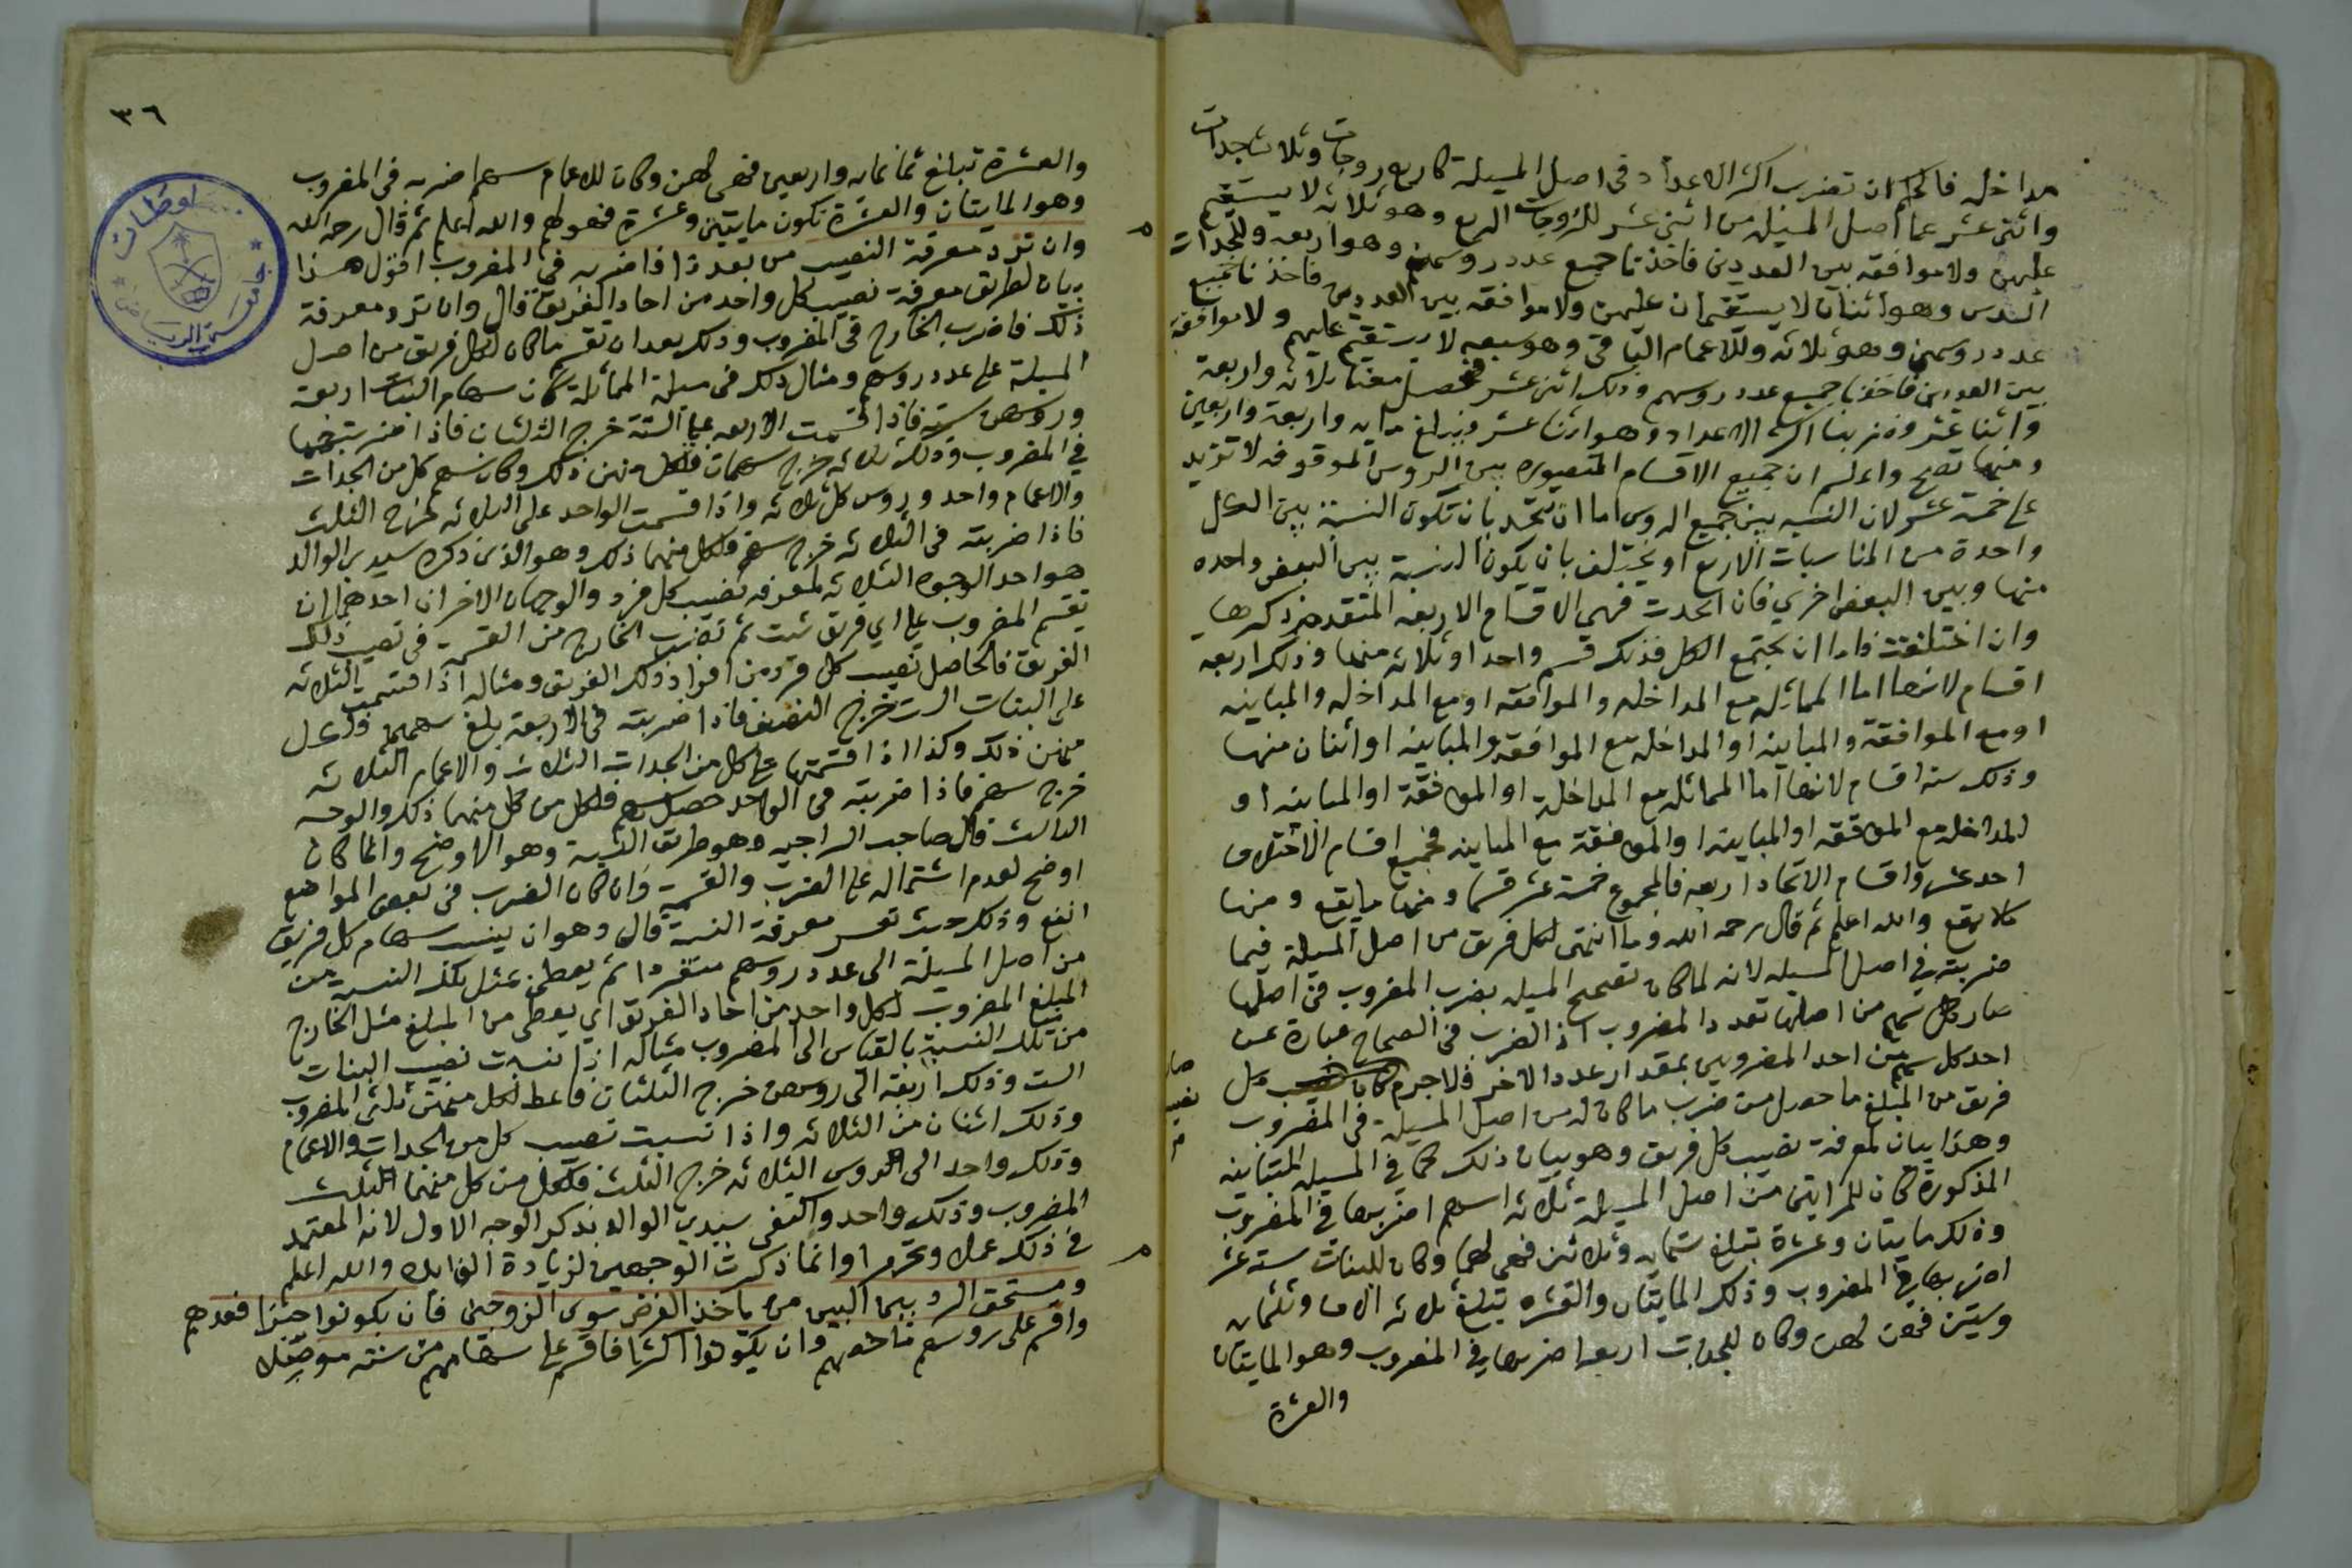 مداخله فالحكم ان تضرب اكثر الاعداد في اصل المسيلة كاربع زوجات وثلاث جدات
واثنى عشر عما اصل المسيله من اثنى عشر للزوجات الربع وهو ثلاثه لا يستقيم
عليهن ولا موافقه بين العددين فاخذنا جميع عدد روسهن وهو اربعه وللجدات
السدس وهو اثنان لا يستقيمان عليهن ولا موافقه بين العددين فاخذنا جميع
عدد روسهن وهو ثلاثه وللاعمام الباقى وهو سبعه لا يستقيم عليهم ولا موافقة
بين العددين فاخذنا جميع عدد روسهم وذلك اثنى عشر فحصل معنا ثلاثه واربعة
واثنا عشر وضربنا اكثر الاعداد وهو اثنا عشر فيبلغ مايه واربعة واربعين
ومنها تصح واعلم ان جميع الاقسام المتصوره بين الروس الموقوفه لا تزيد
على خمسة عشر لان النسبه بين جميع الروس اما ان تتحد بان تكون النسبة بين الكل
واحدة من المناسبات الاربع او تختلف بان يكون النسبة بين البعض واحده
منها وبين البعض اخري فان اتحدت فهي الاقسام الاربعه المتقدم ذكرها
وان اختلفت فاما ان يجتمع الكل فذلك قسم واحد او ثلاثه منها وذلك اربعه
اقسام لانها اما المماثله مع المداخله والموافقه او مع المداخله والمباينه
او مع الموافقة والمباينه او المداخله مع الموافقه والمباينه او اثنان منها
وذلك ستة اقسام لانها اما المماثله مع المداخلة او الموافقة او المباينه او
المداخله مع الموافقه او المباينه او الموافقة مع المباينه فجميع اقسام الاختلاف
احد عشر واقسام الاتحاد اربعه فالمجموع خمسة عشر قسما ومنها ما يقع ومنها
مالا يقع والله اعلم ثم قال رحمه الله وما انتمى لكل فريق من اصل المسيلة فيما
ضربته في اصل المسيله لانه لما كان تصحيح المسيله بضرب المضروب في اصلها
صار كل سهم من اصلها تعدد المضروب اذ الضرب في الصحاح عبارة عن
اخذ كل سهم من احد المضروبين بمقدار عدد الاخر فلا جرم كان كل
نصيب
فريق من المبلغ ما حصل من ضرب ما كان له من اصل المسيلة في المضروب
وهذا بيان لمعرفة نصيب كل فريق وهو بيان ذلك كما في المسيله المتباينه
المذكورة كان للمراتين من اصل المسيلة ثلاثه اسهم اضربها في المضروب
وذلك مايتان وعشرة تبلغ ستمايه وثلاثين فهي لهما وكان للبنات سته عشر
اضربها في المضروب وذلك المايتان والعشره تبلغ ثلاثه الاف وثلثمايه
وستين فهي لهن وكان للجدات اربعه اضربها في المضروب وهو المايتان
والعشرة
٣٦
والعشرة تبلغ ثمانمايه واربعين فهي لهن وكان للاعمام سهم اضربه في المضروب
وهو المايتان والعشرة تكون مايتين وعشرة فهو لهم والله اعلم ثم قال رحمه الله
وان ترد معرفة النصيب من بعد ذا فاضربه في المضروب اقول هذا
بيان لطريق معرفة نصيب كل واحد من احاد الفريق قال وان ترد معرفة
ذلك فاضرب الخارج في المضروب وذلك بعد ان تقسم ما كان لكل فريق من اصل
المسيلة على عدد روسهم ومثال ذلك في مسيلة المماثلة كان سهام البنات اربعة
وروسهن ستة فاذا قسمت الاربعه على الستة خرج الثلثان فاذا ضربتهما
في المضروب وذلك ثلاثه خرج سهمان فلكل منهن ذلك وكان سهم كل من الجدات
والاعمام واحد وروس كل ثلاثه واذا قسمت الواحد على الثلاثه خرج الثلث
فاذا ضربته في الثلاثه خرج سهم فلكل منها ذلك وهو الذي ذكره سيدي الوالد
هو احد الوجوه الثلاثه لمعرفه نصيب كل فرد والوجهان الاخران احدهما ان
تقسم المضروب على اي فريق شيت ثم تضرب الخارج من القسمة في نصيب ذلك
الفريق فالحاصل نصيب كل فرد من افراد ذلك الفريق ومثاله اذا قسمت الثلاثه
على البنات الست خرج النصف فاذا ضربته في الاربعة بلغ سهمين ولكل
منهن ذلك وكذا اذا قسمتها على كل من الجدات الثلاث والاعمام الثلاثه
خرج سهم فاذا ضربته في الواحد حصل سهم فلكل من كل منهما ذلك والوجه
الثالث قال صاحب السراجيه وهو طريق النسبة وهو الاوضح وانما كان
اوضح لعدم اشتماله على الضرب والقسمة وان كان الضرب في بعض المواضع
انفع وذلك حيث تعسر معرفة النسبة قال وهو ان ينسب سهام كل فريق
من اصل المسيلة الى عدد روسهم منفردا ثم يعطى بمثل تلك النسبة من
المبلغ المضروب لكل واحد من احاد الفريق اي يعطى من المبلغ مثل الخارج
من تلك النسبة بالقياس الى المضروب مثاله اذا نسبت نصيب البنات
الست وذلك اربعة الى روسهن خرج الثلثان فاعط لكل منهن ثلثي المضروب
وذلك اثنان من الثلاثه واذا نسبت نصيب كل من الجدات والاعمام
وذلك واحد الى الروس الثلاثه خرج الثلث فلكل من كل منهما الثلث
المضروب وذلك واحد واكتفى سيدي الوالد بذكر الوجه الاول لانه المعتمد
في ذلك عملا وتحريرا وانما ذكرت الوجهين لزيادة الفايده والله اعلم
ومستحق الرد بيما البين من ياخذ الفرض سوى الزوجين فان يكونوا جنسا فعدهم
واقسم على روسهم ما خصهم وان يكونوا اكثرا فاقسم على سهامهم من سته موصلا